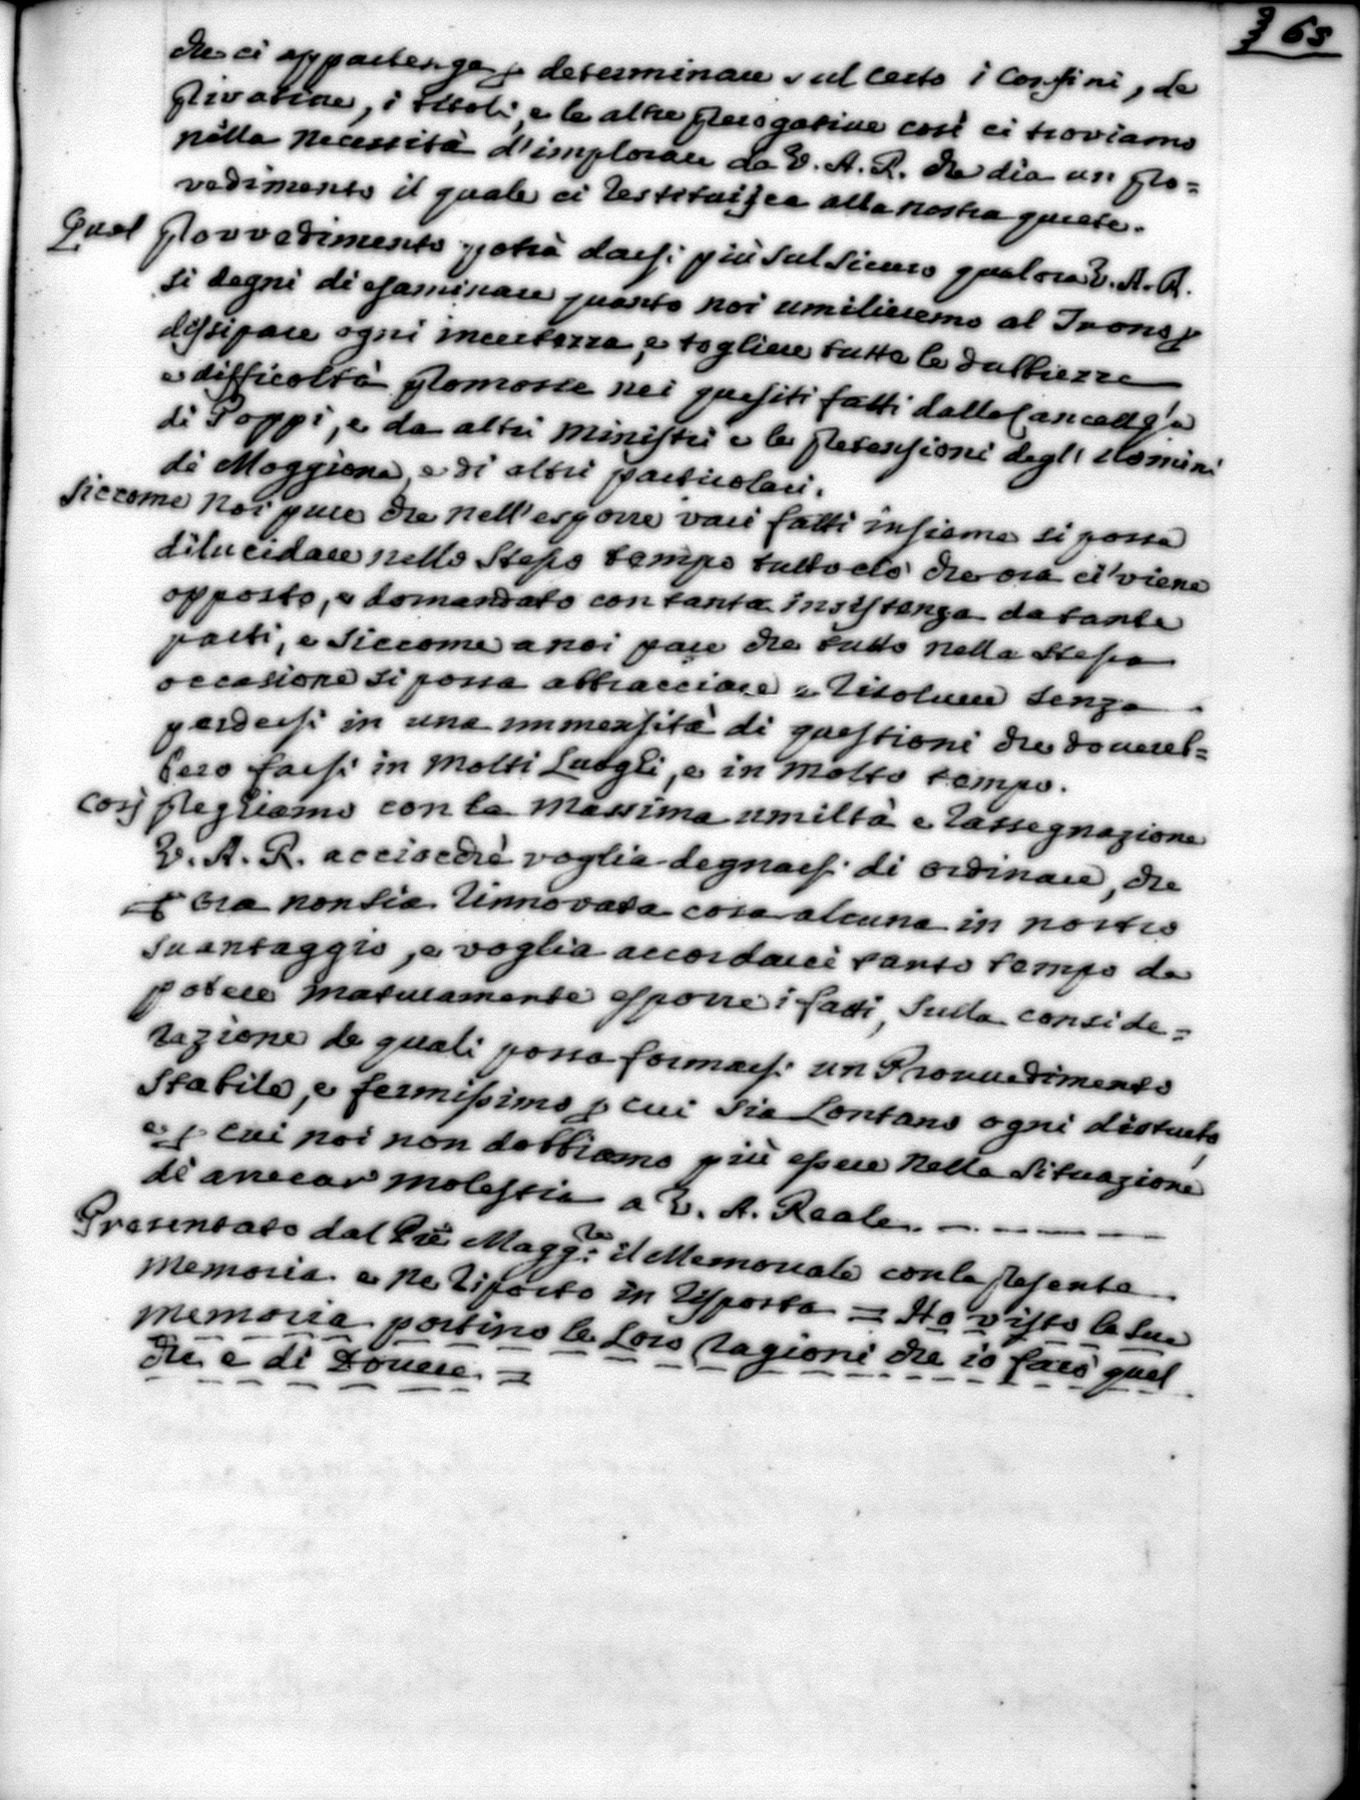 65
che ci appartenga p determinare sul certo i confini, le
privative, i titoli, e le altre prerogative così ci troviamo
nella necessità d'implorare da V. A. R. che dia un pro=
vedimento il quale ci restituisca alla nostra quiete.
Qual provvedimento potrà darsi più sul sicuro qualora V. A. R.
si degni di esaminare quanto noi umilieremo al Trono p
dissipare ogni incertezza, e togliere tutte le dubbiezze
e difficoltà promosse nei quesiti fatti dalla Cancellria
di Poppi, e da altri Ministri e le pretensioni degli Uomini
di Moggiona, e di altri particolari.
Siccome noi pure che nell'esporre vari fatti insieme si possa
dilucidare nello stesso tempo tutto ciò che ora ci viene
opposto, e domandato con tanta insistenza da tante
parti, e siccome a noi pare che tutto nella stessa
occasione si possa abbracciare e risolvere senza
perdersi in una immensità di questioni che dovereb=
bero farsi in molti Luoghi, e in molto tempo.
Così preghiamo con la massima umiltà e rassegnazione
V. A. R. acciocchè voglia degnarsi di ordinare, che
p ora non sia rinnovata cosa alcuna in nostro
svantaggio, e voglia accordarci tanto tempo da
potere maturamente esporre i fatti, sulla conside=
razione de quali possa formarsi un Provvedimento
stabile, e fermissimo p cui sia Lontano ogni disturbo,
e p cui noi non dobbiamo più essere nella situazione
di arrecar molestia a V. A. Reale
Presentato dal Pre Maggre il Memoriale con la presente
memoria e ne riportò in risposta = Ho visto la sua
memoria portino le Loro ragioni che io farò quel
che è di Dovere =